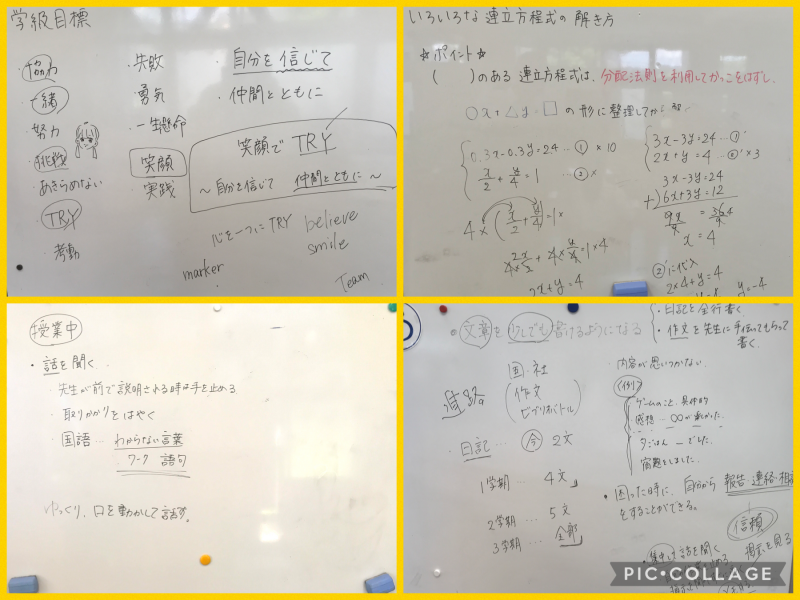 学級目標
協力
一緒
努力
挑戦
あきらめない
TRY
考動
失敗
勇気
一生懸命
笑顔
実践
自分を信じて
仲間とともに
笑顔で TRY
〜自分を信じて 仲間とともに〜
心を一つにTRY
believe
smile
marker
Team
いろいろな連立方程式の解き方
☆ポイント☆
( )のある連立方程式は、分配法則を利用してかっこをはずし、
○x+△y=□の形に整理してから
0.3x-0.3y=2.4 … ① ×10
x/2 + y/4 = 1 … ②×
4×(x/2 + y/4)=1×
4×x/2 + 4×y/4=1×4
2x+y=4
3x-3y=24 … ①'
2x+y=4 … ②'×3
3x-3y=24
+)6x+3y=12
9x/9 = 36/9 4
x=4
②'に代入
2×4+y=4
y=-4
授業中
・話を聞く
・先生が前で説明される時は手を止める
・取りかかりをはやく
・国語… わからない言葉
ワーク 語句
ゆっくり、口を動かして話す。
・文章を少しでも書けるようになる
国・社
(作文
ビブリオバトル)
進路
・日記… 今 2文
1学期… 4文
2学期… 5文
3学期… 全部
・日記を全行書く
・作文を先生に手伝ってもらって
書く。
・内容が思いつかない
(例)
ゲームのこと、具体的
感想 … ○○が楽かった。
夕ごはん ー でした。
宿題をしました。
・困った時に、自分から報告・連絡・相
をすることができる。
信頼
・集中して話を聞く
掲示を見る
PIC•COLLAGE